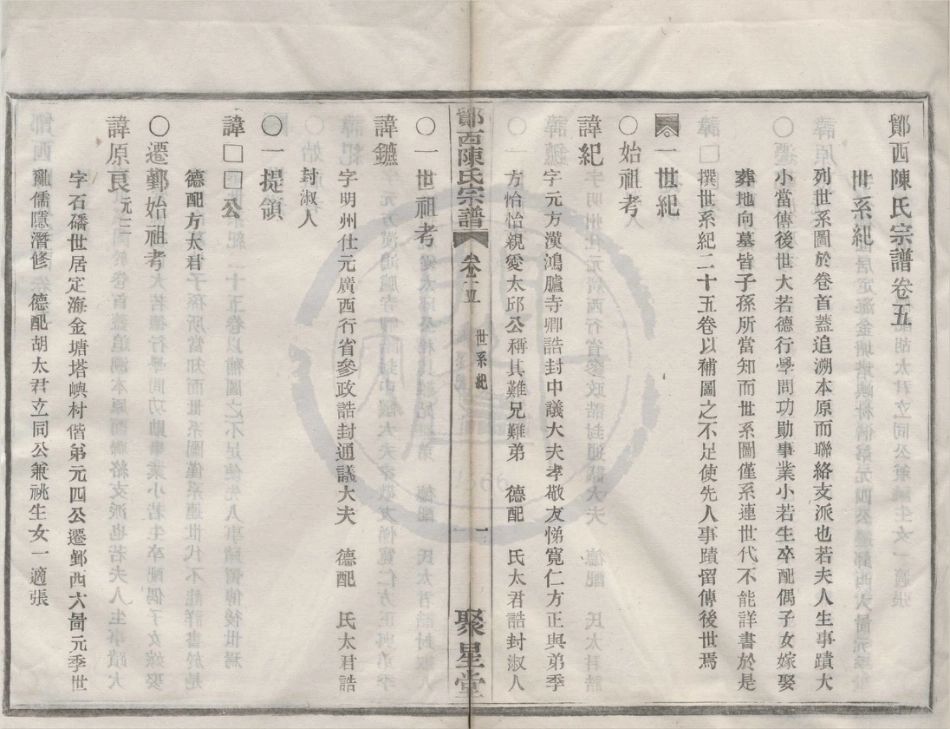 鄞西陳氏宗譜卷五
世系紀
列世系圖於卷首蓋追溯本原而聯絡支派也若夫人生事蹟大
小當傳後世大若德行學問功勛事業小若生卒配偶子女嫁娶
葬地向墓皆子孫所當知而世系圖僅系連世代不能詳書於是
撰世系紀二十五卷以補圖之不足使先人事蹟留傳後世焉
一世紀
〇始祖考
諱紀
字元方漢鴻臚寺卿誥封中議大夫孝敬友悌寬仁方正與弟季
方怡怡親愛太邱公稱其難兄難弟 德配 氏太君誥封淑人
鄞西陳氏宗譜 卷五 世系紀 一 聚星堂
〇一世祖考
諱鑣
字明州仕元廣西行省參政誥封通議大夫 德配 氏太君誥
封淑人
〇一提領
諱□□公
德配方太君
〇遷鄞始祖考
諱原良元三
字石磻世居定海金塘塔嶼村偕弟元四公遷鄞西大雷元季世
亂儒隱潛修 德配胡太君立同公兼祧生女一適張